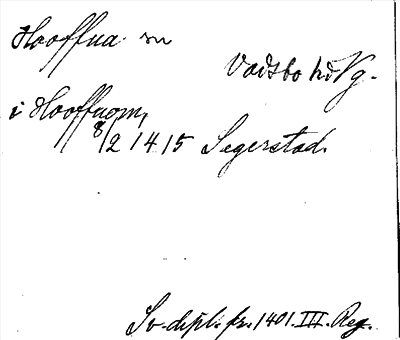 Hooffua sn
Vadsbo hd Vg.
i Hooffuom,
8/2 1415 Segerstad.
Sv. dipl. fr. 1401. III. Reg.